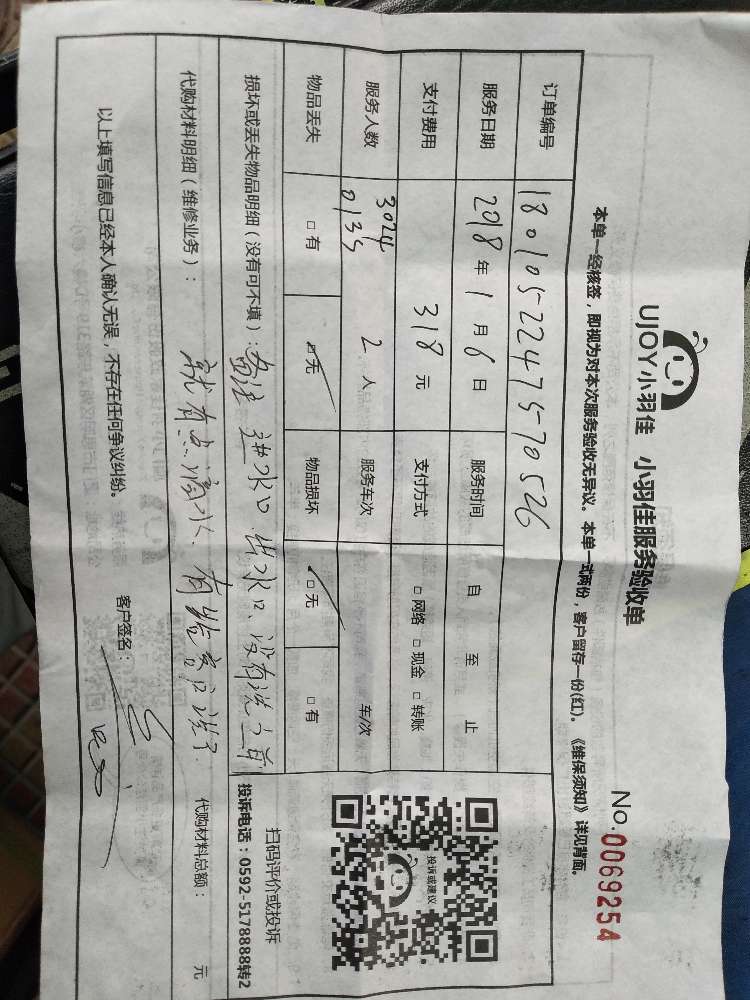 UJOY小羽佳 小羽佳服务验收单
No.0069254
本单一经核签，即视为对本次服务验收无异议。本单一式两份，客户留存一份(红)。《维保须知》详见背面。
订单编号 1801052247570526
服务日期 2018年1月6日 服务时间 自 至 止
支付费用 318元 支付方式 □网络 □现金 □转账
服务人数 3024 0135 2人 服务车次 车/次
物品丢失 □有 □无 物品损坏 □无 □有
损坏或丢失物品明细（没有可不填）：备注 进水口、出水口、没有洗之前
就有点滴水、有给客户说了
代购材料明细（维修业务）： 代购材料总额： 元
以上填写信息已经本人确认无误，不存在任何争议纠纷。 客户签名：
投诉或建议
扫码评价或投诉
投诉电话：0592-5178888转2